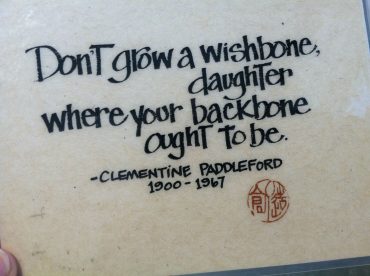 Don't grow a wishbone,
daughter
where your backbone
ought to be.
-CLEMENTINE PADDLEFORD
1900-1967
創造